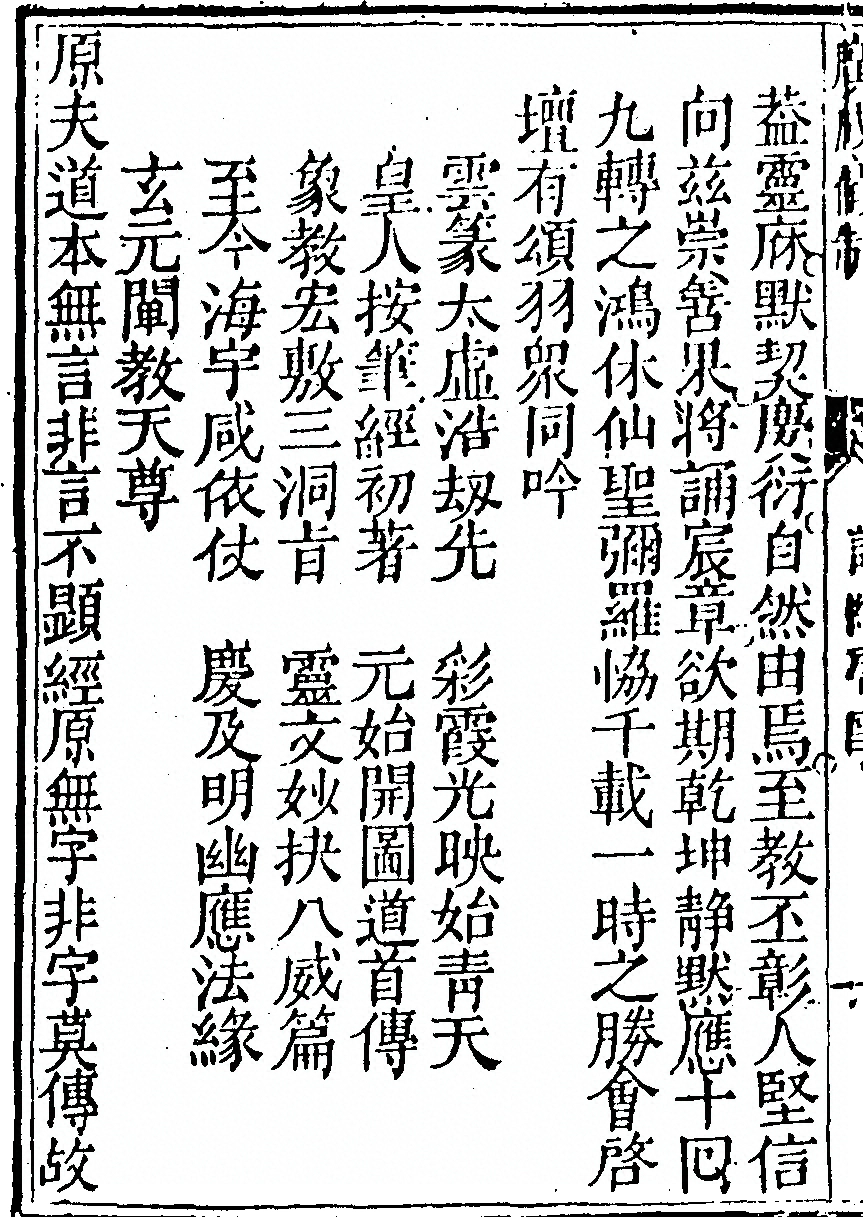 葢靈庥默契磨衍自然由焉至教丕彰人堅信
向茲崇善果將誦宸章欲期乾坤靜默應十囘
九轉之鴻休仙聖彌羅恊千載一時之勝會啓
壇有頌羽衆同吟
雲篆太虛浩刼先　彩霞光映始青天
皇人按筆經初著　元始開圖道首傳
象教宏敷三洞旨　靈文妙抉八威篇
至今海宇咸依仗　慶及明幽應法緣
玄元闡教天尊
原夫道本無言非言不顯經原無字非字莫傳故